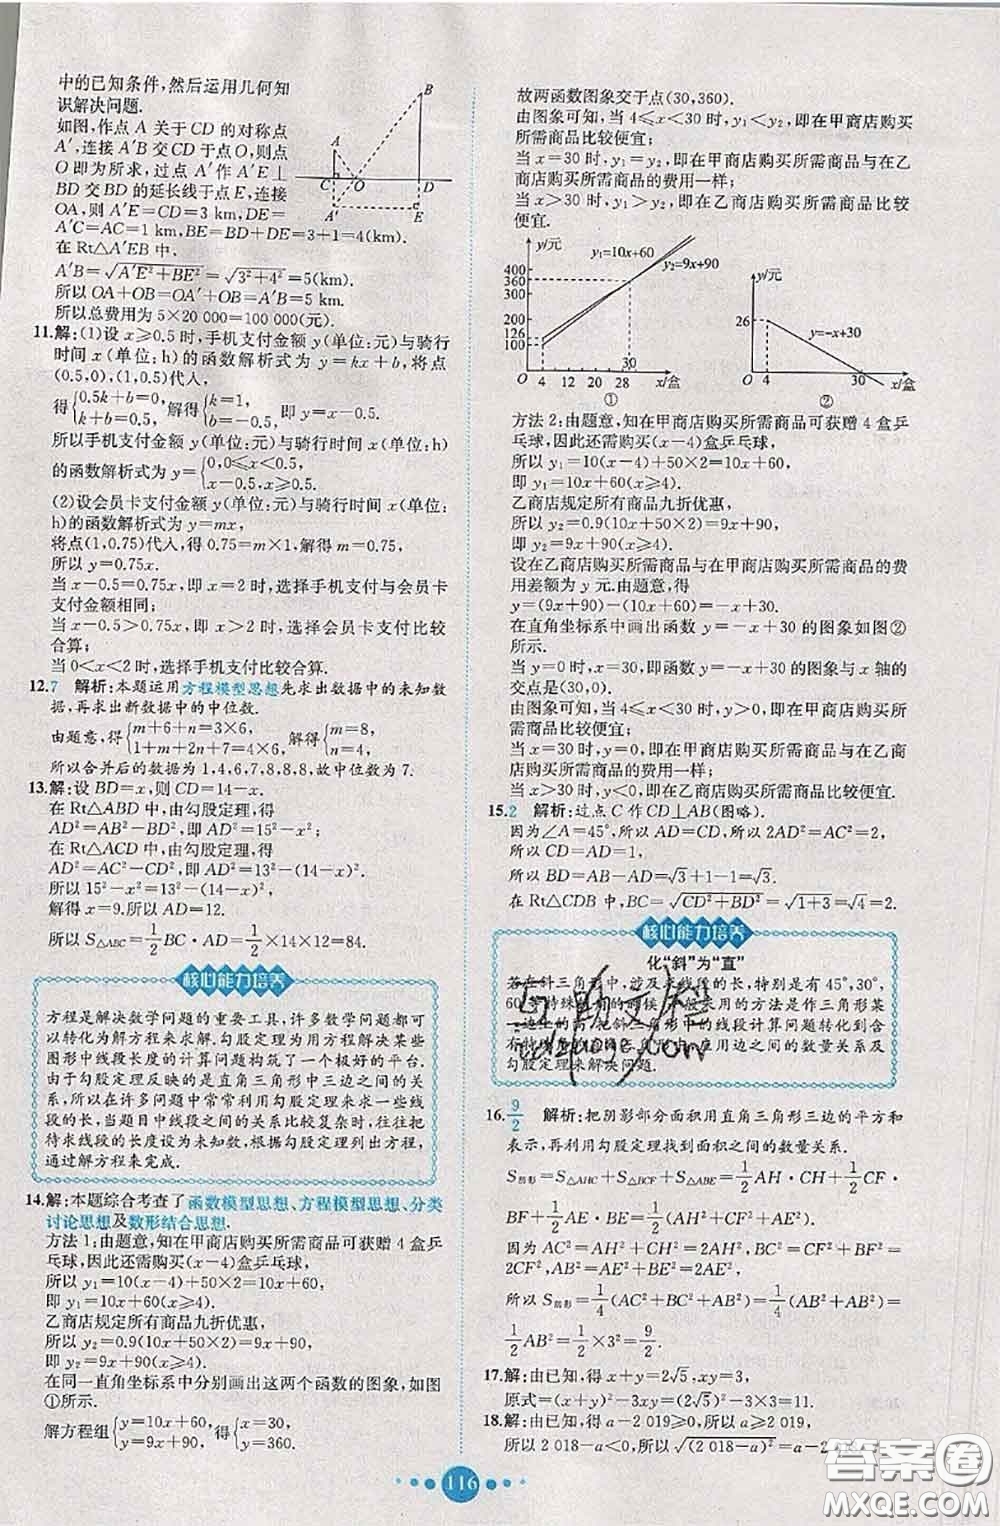 中的已知条件,然后运用几何知
识解决问题.
如图,作点 A 关于 CD 的对称点
A′,连接 A′B 交 CD 于点 O,则点
O 即为所求,过点 A′作 A′E⊥
BD 交 BD 的延长线于点 E,连接
OA,则 A′E=CD=3 km,DE=
A′C=AC=1 km,BE=BD+DE=3+1=4(km).
在 Rt△A′EB 中,
A′B=√(A′E²+BE²)=√(3²+4²)=5(km).
所以 OA+OB=OA′+OB=A′B=5(km).
所以总费用为 5×20 000=100 000(元).
B
A
C O D
A′ E
11.解:(1)设 x≥0.5 时,手机支付金额 y(单位:元)与骑行
时间 x(单位:h)的函数解析式为 y=kx+b,将点
(0.5,0),(1,0.5)代入,
得{0.5k+b=0, k+b=0.5, 解得{k=1, b=-0.5, 即 y=x-0.5.
所以手机支付金额 y(单位:元)与骑行时间 x(单位:h)
的函数解析式为 y={0,0≤x<0.5, x-0.5,x≥0.5.
(2)设会员卡支付金额 y(单位:元)与骑行时间 x(单位:
h)的函数解析式为 y=mx,
将点(1,0.75)代入,得 0.75=m×1,解得 m=0.75,
所以 y=0.75x.
当 x-0.5=0.75x,即 x=2 时,选择手机支付与会员卡
支付金额相同;
当 x-0.5>0.75x,即 x>2 时,选择会员卡支付比较
合算;
当 0<x<2 时,选择手机支付比较合算.
12.7 解析:本题运用方程模型思想先求出数据中的未知数
据,再求出新数据中的中位数.
由题意,得{m+6+n=3×6, 1+m+2n+7=4×6, 解得{m=8, n=4.
所以合并后的数据为 1,4,6,7,8,8,8,故中位数为 7.
13.解:设 BD=x,则 CD=14-x.
在 Rt△ABD 中,由勾股定理,得
AD²=AB²-BD²,即 AD²=15²-x²;
在 Rt△ACD 中,由勾股定理,得
AD²=AC²-CD²,即 AD²=13²-(14-x)².
所以 15²-x²=13²-(14-x)².
解得 x=9.所以 AD=12.
所以 S△ABC=1/2 BC·AD=1/2×14×12=84.
核心能力培养
方程是解决数学问题的重要工具,许多数学问题都可
以转化为解方程来求解.勾股定理为用方程解决某些
图形中线段长度的计算问题构筑了一个极好的平台.
由于勾股定理反映的是直角三角形中三边之间的关
系,所以在许多问题中常常利用勾股定理来求一些线
段的长,当题目中线段的关系比较复杂时,往往把
待求线段的长度设为未知数,根据勾股定理列出方程,
通过解方程来完成.
14.解:本题综合考查了函数模型思想、方程模型思想、分类
讨论思想及数形结合思想.
方法 1:由题意,知在甲商店购买所需商品可获赠 4 盒乒
乓球,因此还需购买(x-4)盒乒乓球,
所以 y₁=10(x-4)+50×2=10x+60,
即 y₁=10x+60(x≥4).
乙商店规定所有商品九折优惠,
所以 y₂=0.9(10x+50×2)=9x+90,
即 y₂=9x+90(x≥4).
在同一直角坐标系中分别画出这两个函数的图象,如图
①所示.
解方程组{y=10x+60, y=9x+90, 得{x=30, y=360.
故两函数图象交于点(30,360).
由图象可知,当 4≤x<30 时,y₁<y₂,即在甲商店购买
所需商品比较便宜;
当 x=30 时,y₁=y₂,即在甲商店购买所需商品与在乙
商店购买所需商品的费用一样;
当 x>30 时,y₁>y₂,即在乙商店购买所需商品比较
便宜.
y/元 y₁=10x+60
y₂=9x+90
400
360
300
200
126
100
O 4 12 20 28 30 x/盒
①
y/元
26
y=-x+30
O 4 30 x/盒
②
方法 2:由题意,知在甲商店购买所需商品可获赠 4 盒乒
乓球,因此还需购买(x-4)盒乒乓球,
所以 y₁=10(x-4)+50×2=10x+60,
即 y₁=10x+60(x≥4).
乙商店规定所有商品九折优惠,
所以 y₂=0.9(10x+50×2)=9x+90,
即 y₂=9x+90(x≥4).
设在乙商店购买所需商品与在甲商店购买所需商品的费
用差额为 y 元.由题意,得
y=(9x+90)-(10x+60)=-x+30.
在直角坐标系中画出函数 y=-x+30 的图象如图②
所示.
当 y=0 时,x=30,即 y=-x+30 的图象与 x 轴的
交点是(30,0).
由图象可知,当 4≤x<30 时,y>0,即在甲商店购买所
需商品比较便宜;
当 x=30 时,y=0,即在甲商店购买所需商品与在乙商
店购买所需商品的费用一样;
当 x>30 时,y<0,即在乙商店购买所需商品比较便宜.
15.2 解析:过点 C 作 CD⊥AB(图略).
因为∠A=45°,所以 AD=CD,所以 2AD²=AC²=2,
所以 CD=AD=1,
所以 BD=AB-AD=√3+1-1=√3.
在 Rt△CDB 中,BC=√(CD²+BD²)=√(1+3)=√4=2.
核心能力培养
化“斜”为“直”
若在斜三角形中,涉及求线段的长,特别是有 45°,30°,
采用的方法是作三角形某
三角形中的线段计算问题转化到含
应用边之间的数量关系及
勾股定理来解决问题.
16.9/2 解析:把阴影部分面积用直角三角形三边的平方和
表示,再利用勾股定理找到面积之间的数量关系.
S阴影=S△AHC+S△BCF+S△ABE=1/2 AH·CH+1/2 CF·
BF+1/2 AE·BE=1/2(AH²+CF²+AE²).
因为 AC²=AH²+CH²=2AH²,BC²=CF²+BF²=
2CF²,AB²=AE²+BE²=2AE²,
所以 S阴影=1/4(AC²+BC²+AB²)=1/4(AB²+AB²)=
1/2 AB²=1/2×3²=9/2.
17.解:由已知,得 x+y=2√5,xy=3,
原式=(x+y)²-3xy=(2√5)²-3×3=11.
18.解:由已知,得 a-2 019≥0,所以 a≥2 019,
所以 2 018-a<0,所以 √(2 018-a)²=a-2
116
答案圈
MXQE.COM